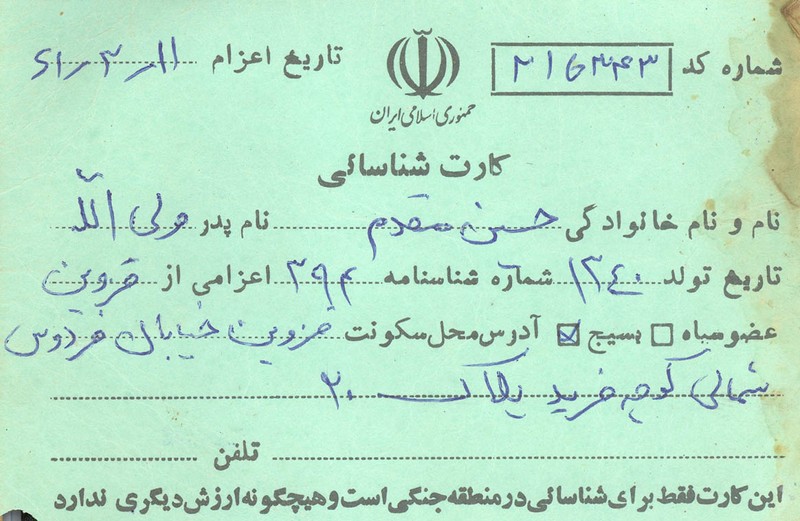 شماره کد ۲۱۵۳۴۳ تاریخ اعزام ۶۱٫۳٫۱۱
جمهوری اسلامی ایران
کارت شناسائی
نام و نام خانوادگی حسن مقدم نام پدر ولی الله
تاریخ تولد ۱۳۴۰ شماره شناسنامه ۳۹۴ اعزامی از قزوین
عضو سپاه □ بسیج ☑ آدرس محل سکونت قزوین خیابان فردوس
شمالی کوچه خرید پلاک ۲۰
تلفن
این کارت فقط برای شناسائی در منطقه جنگی است و هیچگونه ارزش دیگری ندارد